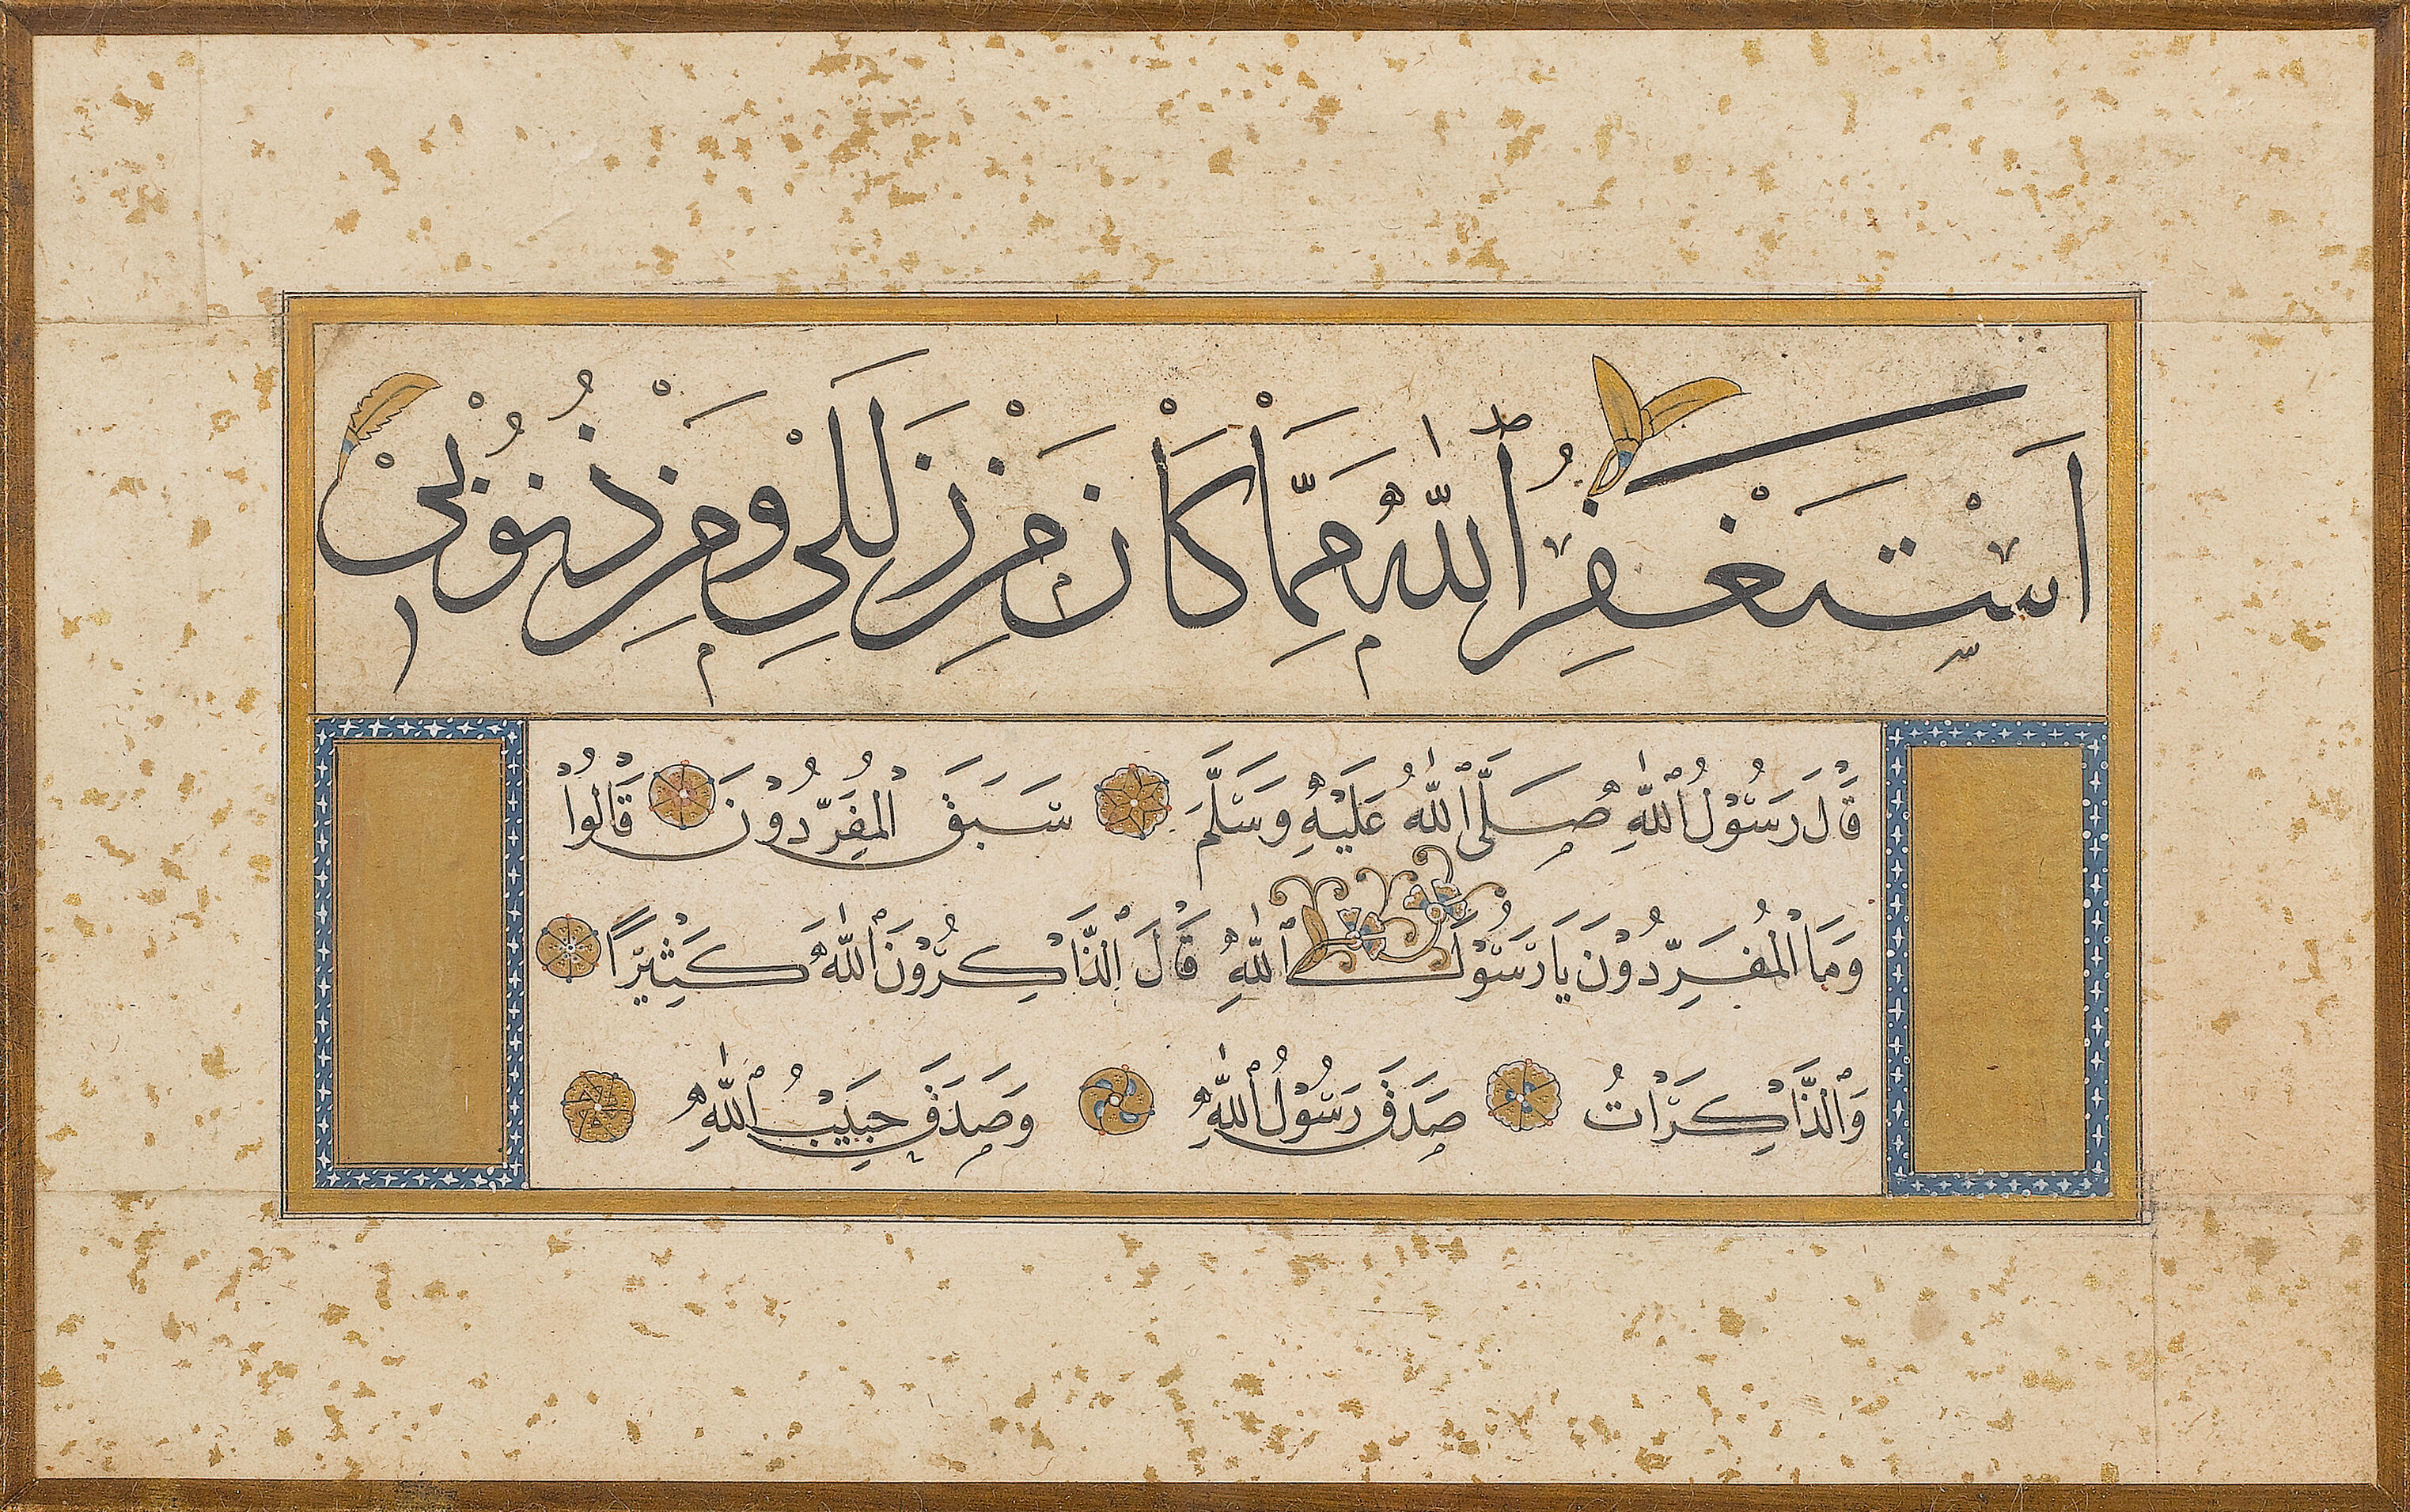 اَسْتَغْفِرُ ٱللّٰهَ مِمَّا كَانَ مِنْ زَلَلِيْ وَمِنْ ذُنُوْبِيْ
قَالَ رَسُوْلُ ٱللّٰهِ صَلَّى ٱللّٰهُ عَلَيْهِ وَسَلَّمَ سَبَقَ الْمُفَرِّدُوْنَ قَالُوْا
وَمَا الْمُفَرِّدُوْنَ يَا رَسُوْلَ ٱللّٰهِ قَالَ ٱلذَّاكِرُوْنَ ٱللّٰهَ كَثِيْرًا
وَٱلذَّاكِرَاتُ صَدَقَ رَسُوْلُ ٱللّٰهِ وَصَدَقَ حَبِيْبُ ٱللّٰهِ